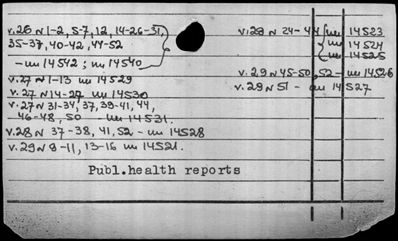 v.26 N 1-2, 5-7, 12, 14-26-31,
35-37, 40-42, 44-52
- ш 14542; ш 14540
v.27 N 1-13 ш 14529
v.27 N 14-27 ш 14530
v.27 N 31-34, 37, 39-41, 44,
46-48, 50 - ш 14531.
v.28 N 37-38, 41, 52 - ш 14528
v.29 N 9-11, 13-16 ш 14521.
v.29 N 24-44 ш 14523
ш 14524
ш 14525
v.29 N 45-50, 52 - ш 14526
v.29 N 51 - ш 14527
Publ.health reports